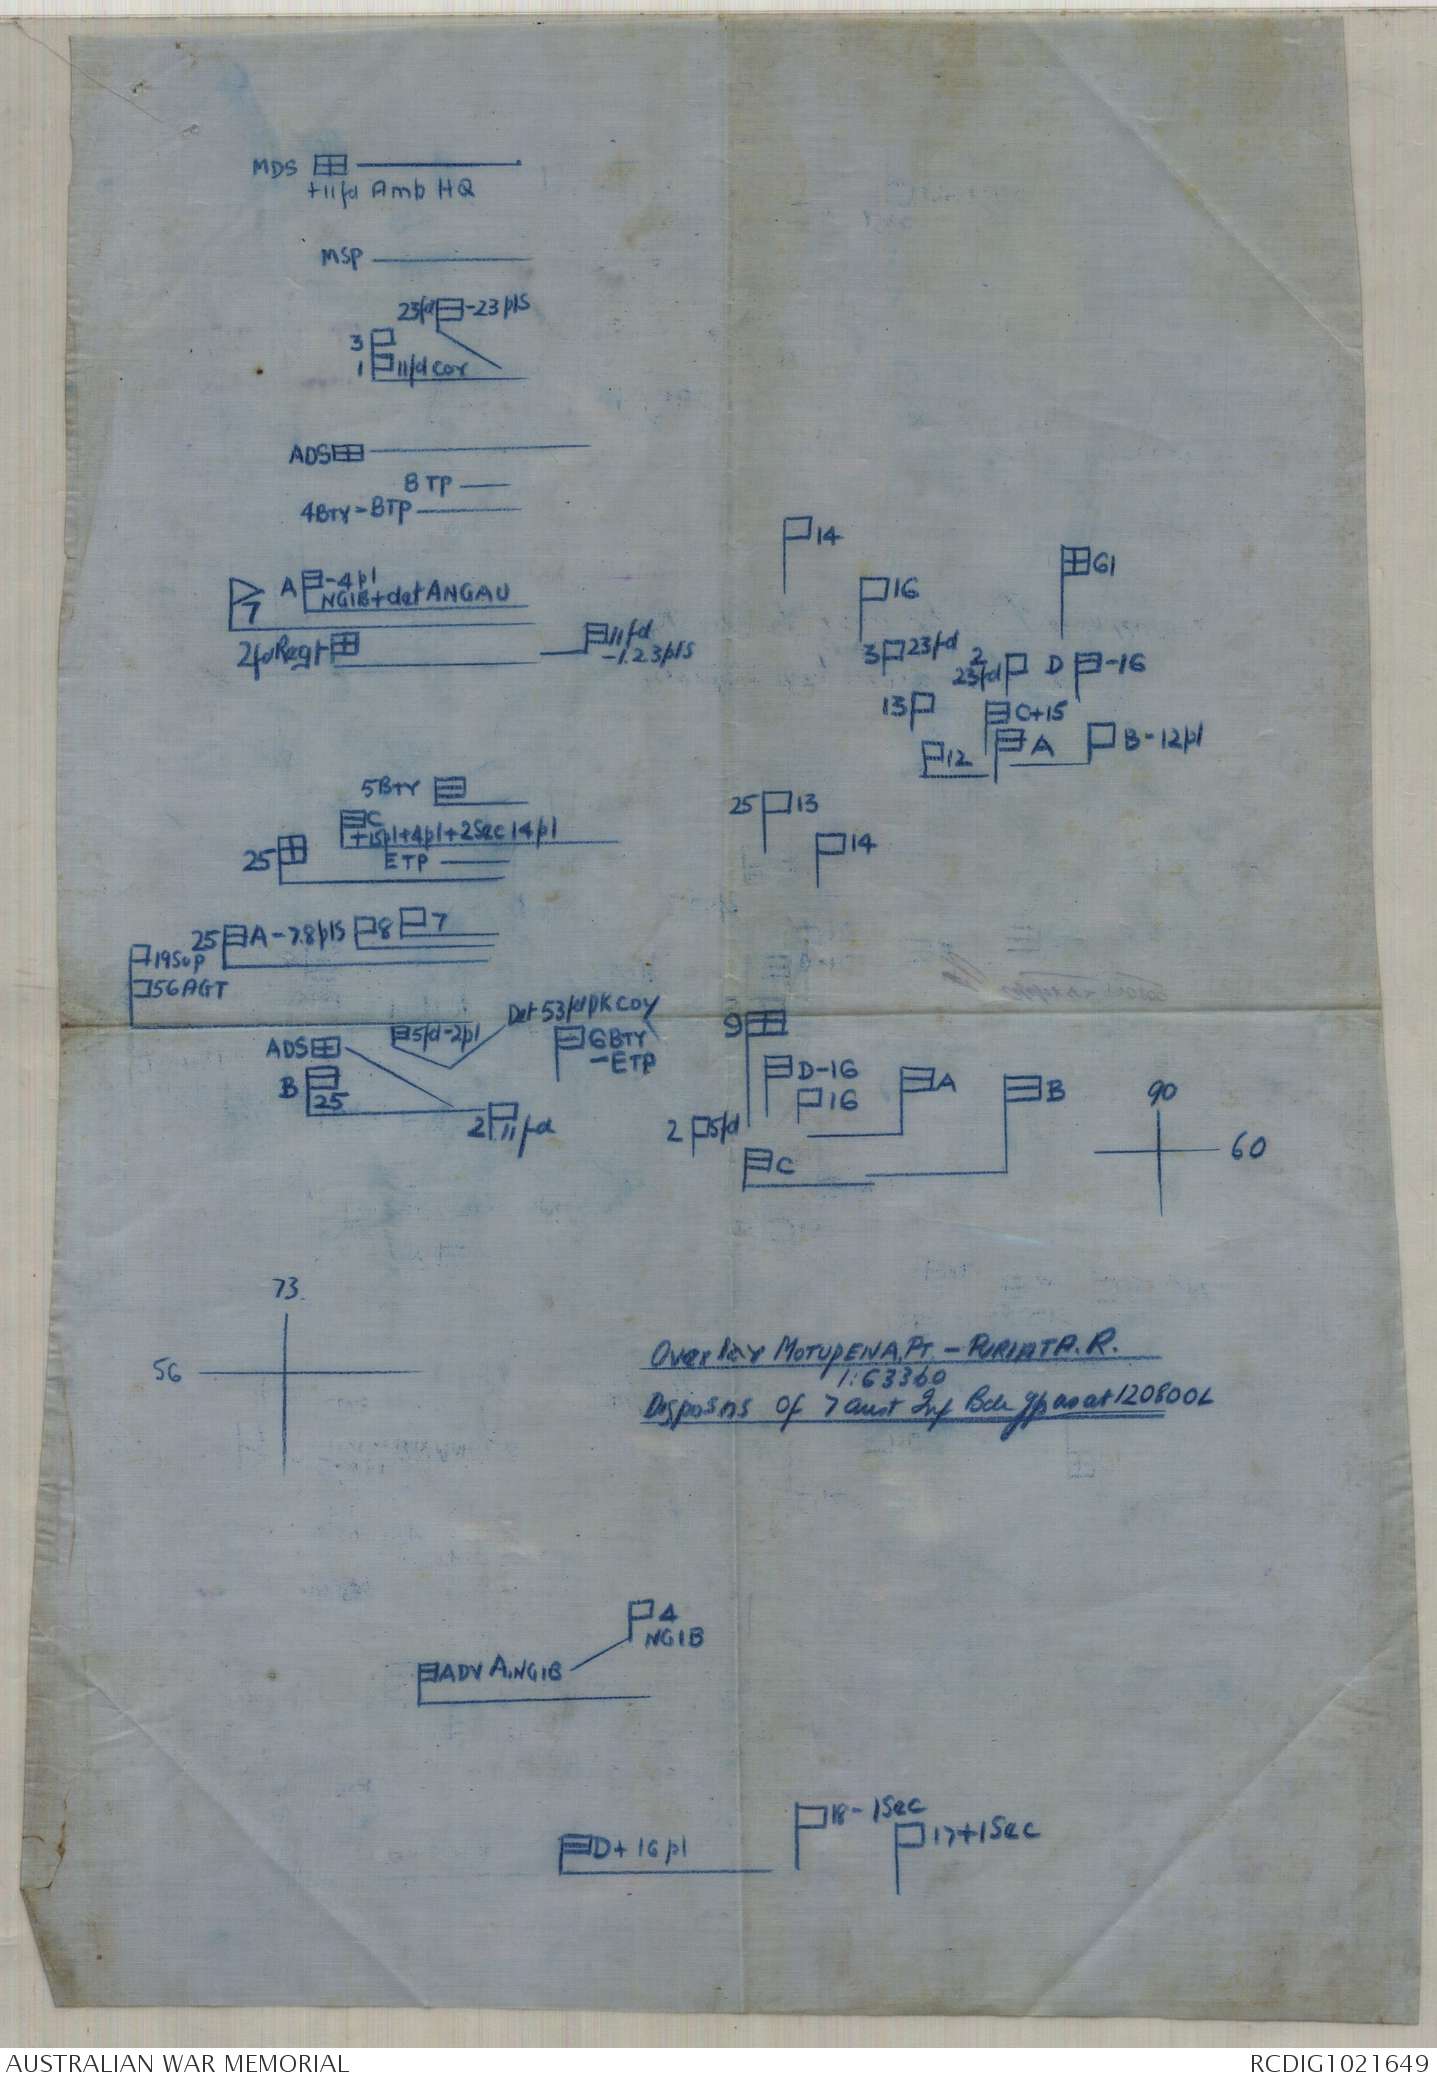 MDS
+11fd Amb HQ
MSP
23fd -23plS
3
1 11fd COY
ADS
BTP
4BTY-BTP
14
61
A -4pl
NGIB+det ANGAU
7
16
2fdRegt
11fd
-1.23plS
3 23fd
2
23fd
D -16
13
C+15
12
A
B-12pl
5BTY
C
+15pl+4pl+2Sec 14pl
25 13
25
ETP
14
25 A-7.8plS 8 7
19Sup
56AGT
Det 53fdpkCoy
5fd-2pl
6BTY
-ETP
9
ADS
D-16
A
B
B
25
16
90
2 11fd
2 5fd
60
C
73
56
Overlay MOTUPENA.PT.-PURIATA.R.
1:63360
Disposns of 7 Aust Inf Bde gp as at 120800L
4
NGIB
ADV A.NGIB
18-1Sec
17+1Sec
D+16pl
AUSTRALIAN WAR MEMORIAL
RCDIG1021649